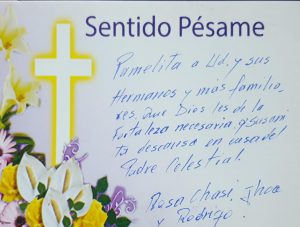 Sentido Pésame
Pamelita a Ud. y sus
Hermanos y más familia
res, que Dios les de la
fortaleza necesaria y Susani
ta descansa en casa del
Padre Celestial.
Rosa Chasi,
y Rodrigo.